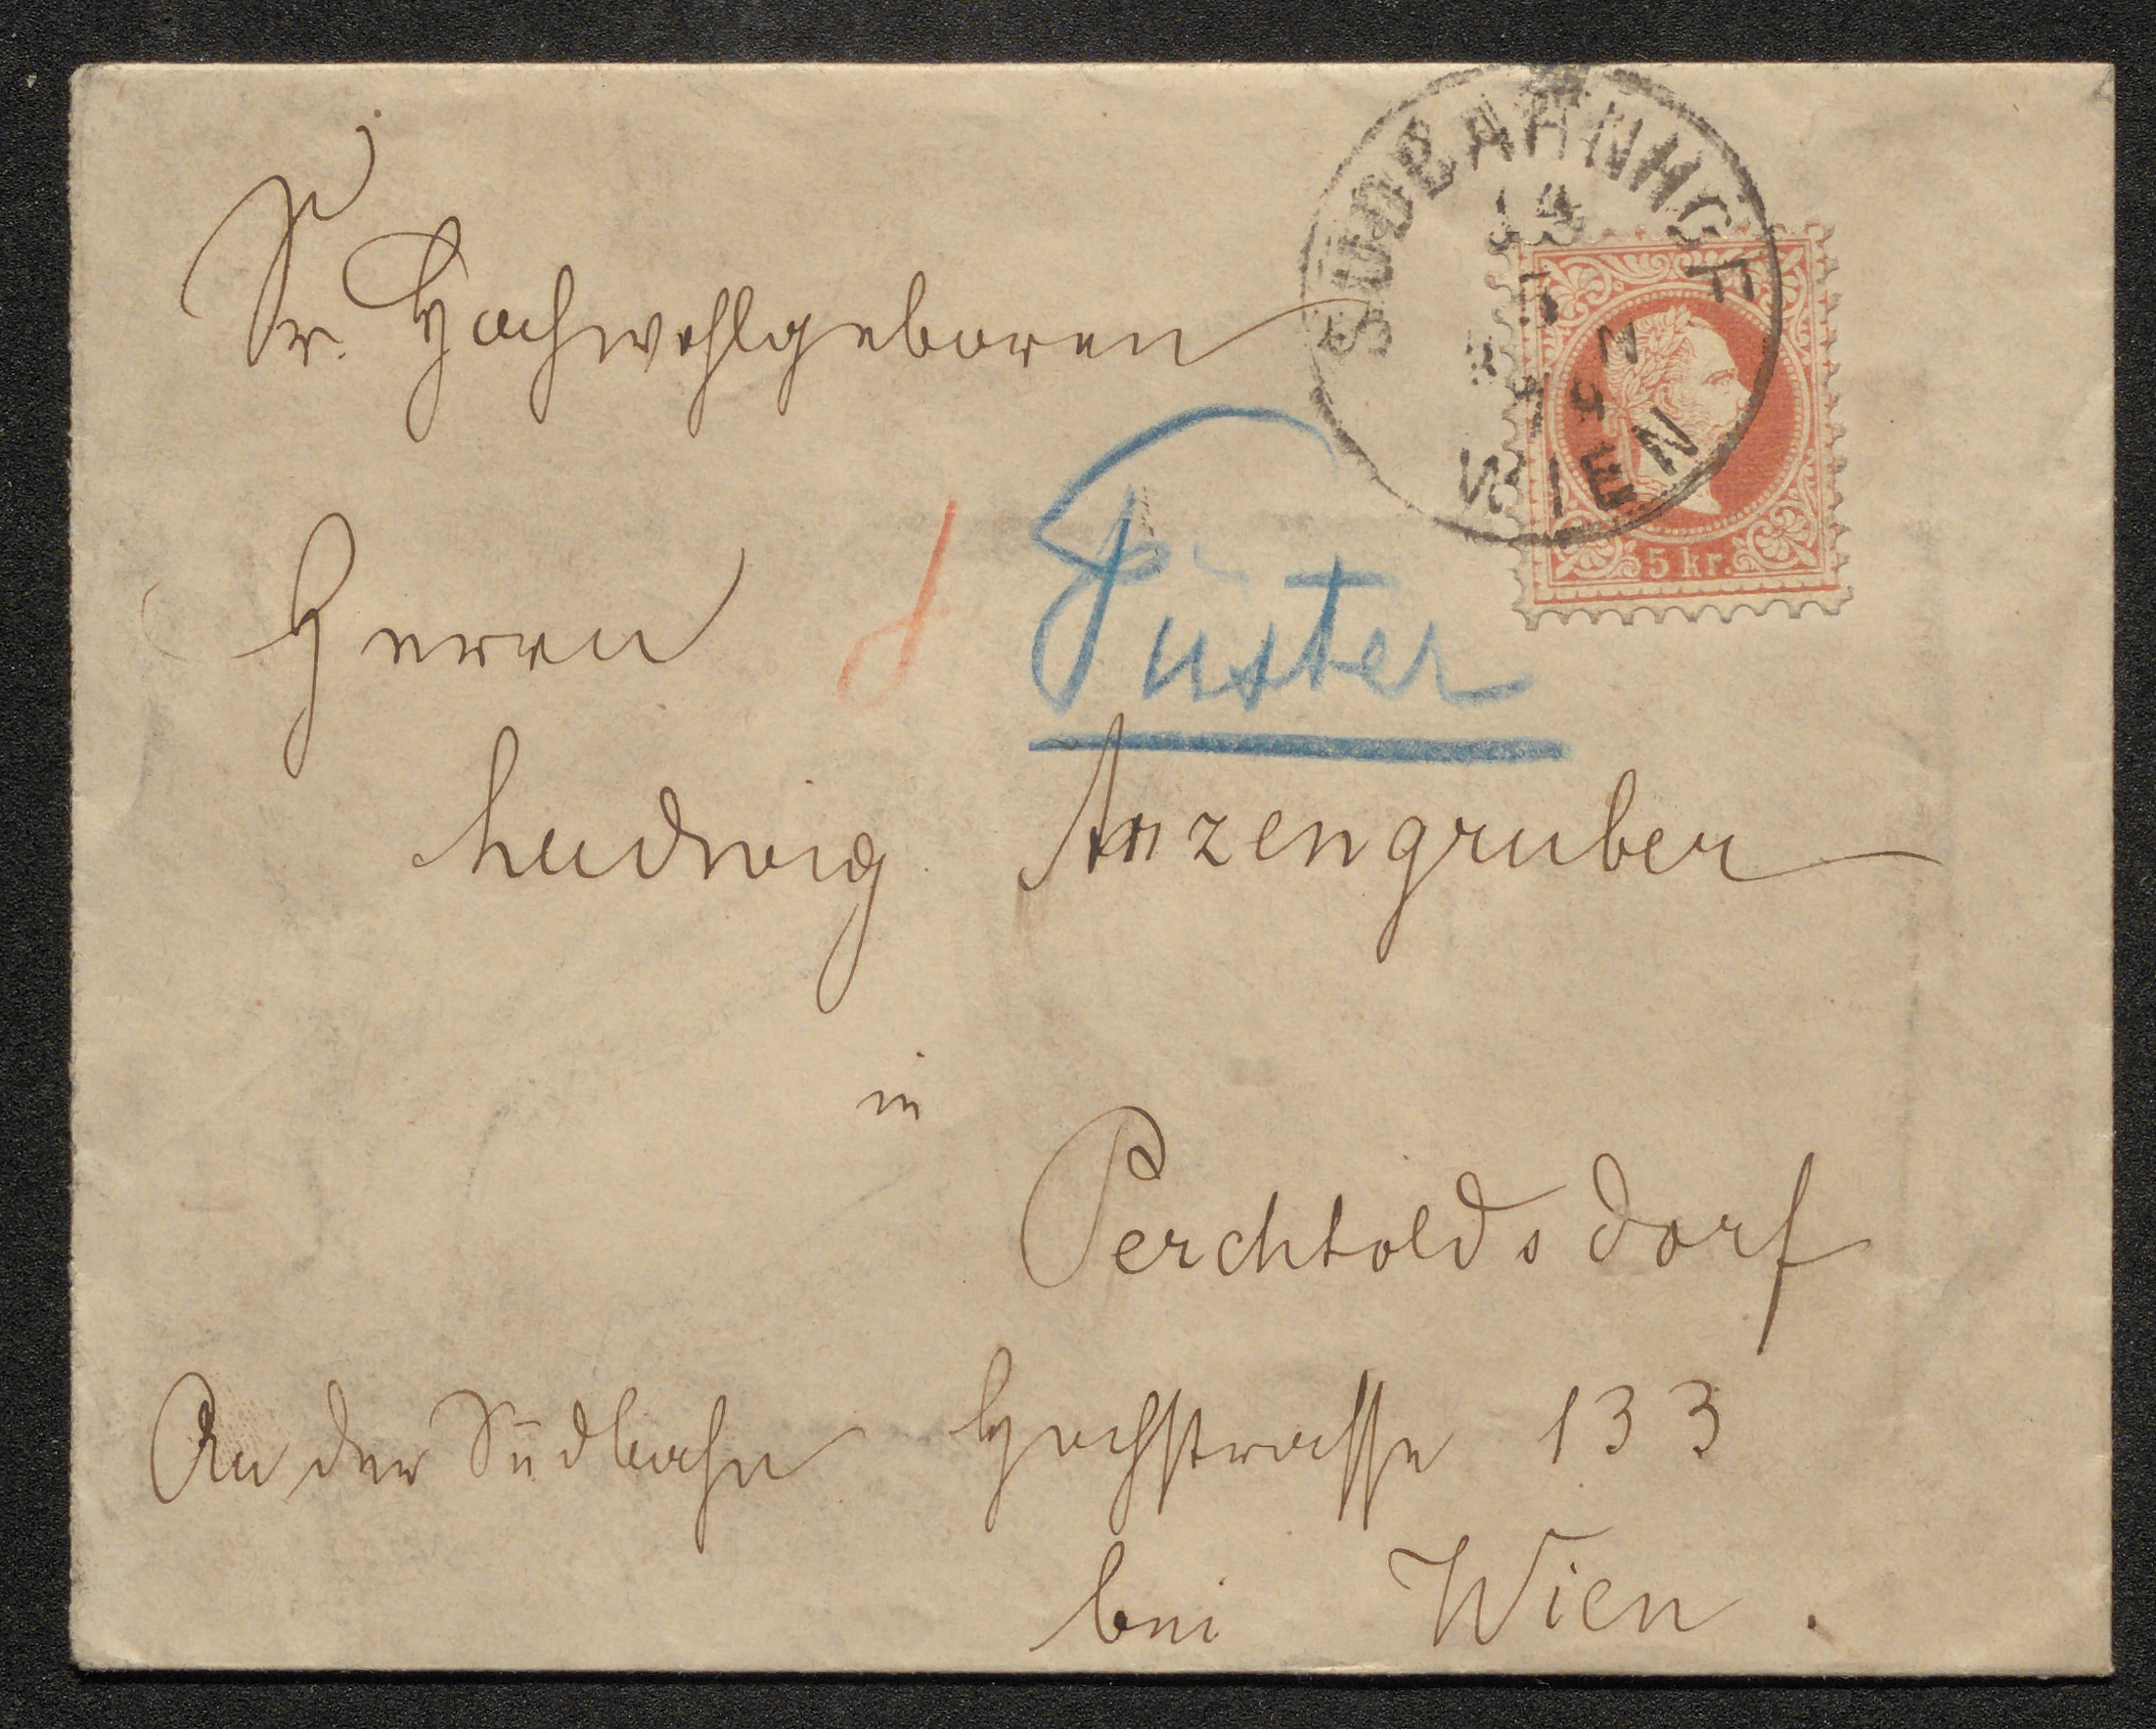 SÜDBAHNHOF
14
5
WIEN
5 kr.
Sr. Hochwohlgeboren
Herrn
Püster
Ludwig Anzengruber
in
Perchtoldsdorf
An der Südbahn Hochstrasse 133
bei Wien.